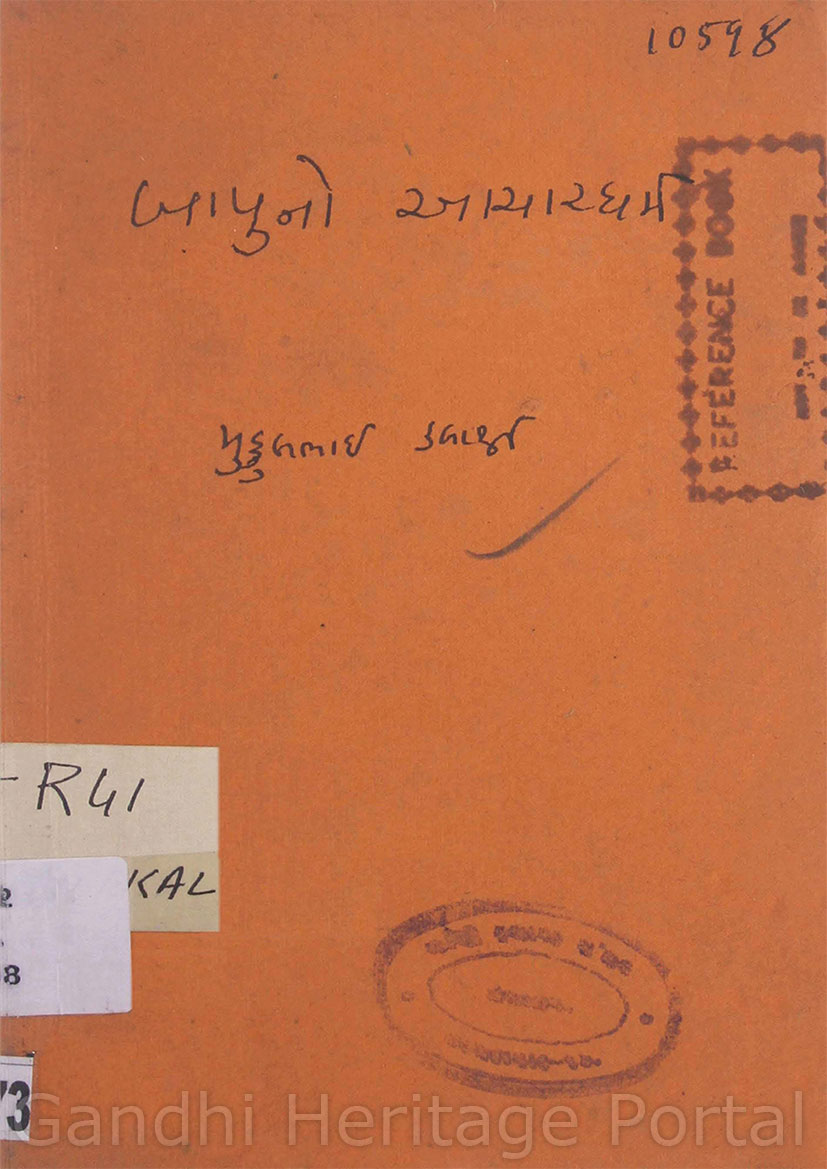 10598
બાપુનો આચારધર્મ
REFERENCE BOOK
મુકુલભાઈ કલાર્થી
R41
KAL
2
8
73
Gandhi Heritage Portal